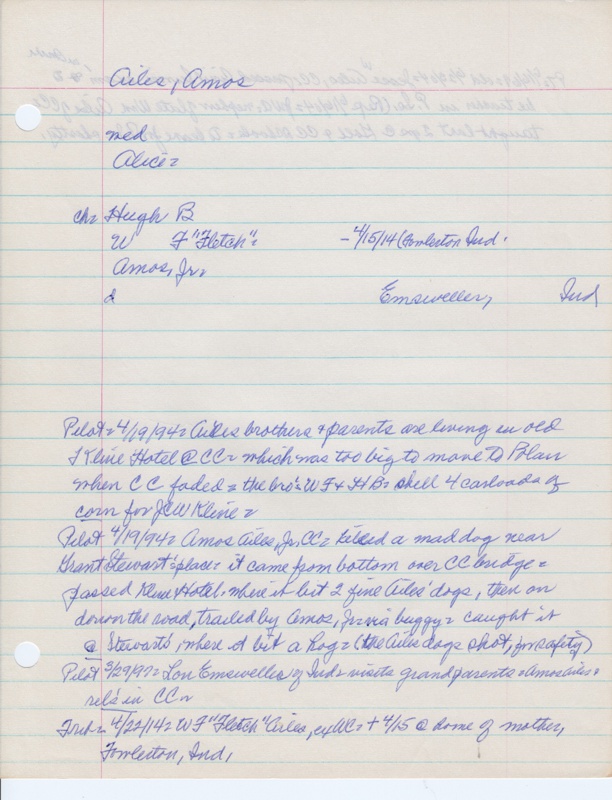 Ailes, Amos
med
Alice=
ch= Hugh B
W F "Fletch"= -4/15/14 (Fowlerton Ind.
Amos, Jr=
d Emsweller, Ind
Pilot= 4/19/94= Ailes brothers & parents are living in old
Kline Hotel @ CC= which was too big to move to Blair
when CC faded= the bro's WF & HB= shell 4 carloads of
corn for JCW Kline=
Pilot 4/19/94= Amos Ailes, Jr, CC= killed a mad dog near
Grant Stewart's place= it came from bottom over CC bridge=
passed Kline Hotel, where it bit 2 fine Ailes' dogs, then on
down the road, trailed by Amos, Jr via buggy= caught it
@ Stewarts, where it bit a hog= (the Ailes dogs shot, for safety)
Pilot 3/29/97= Lon Emsweller of Ind= visits grandparents= Amos Ailes &
rels in CC=
Trib= 4/22/14= WF "Fletch" Ailes, ex CC= + 4/15 @ home of mother,
Fowlerton, Ind,